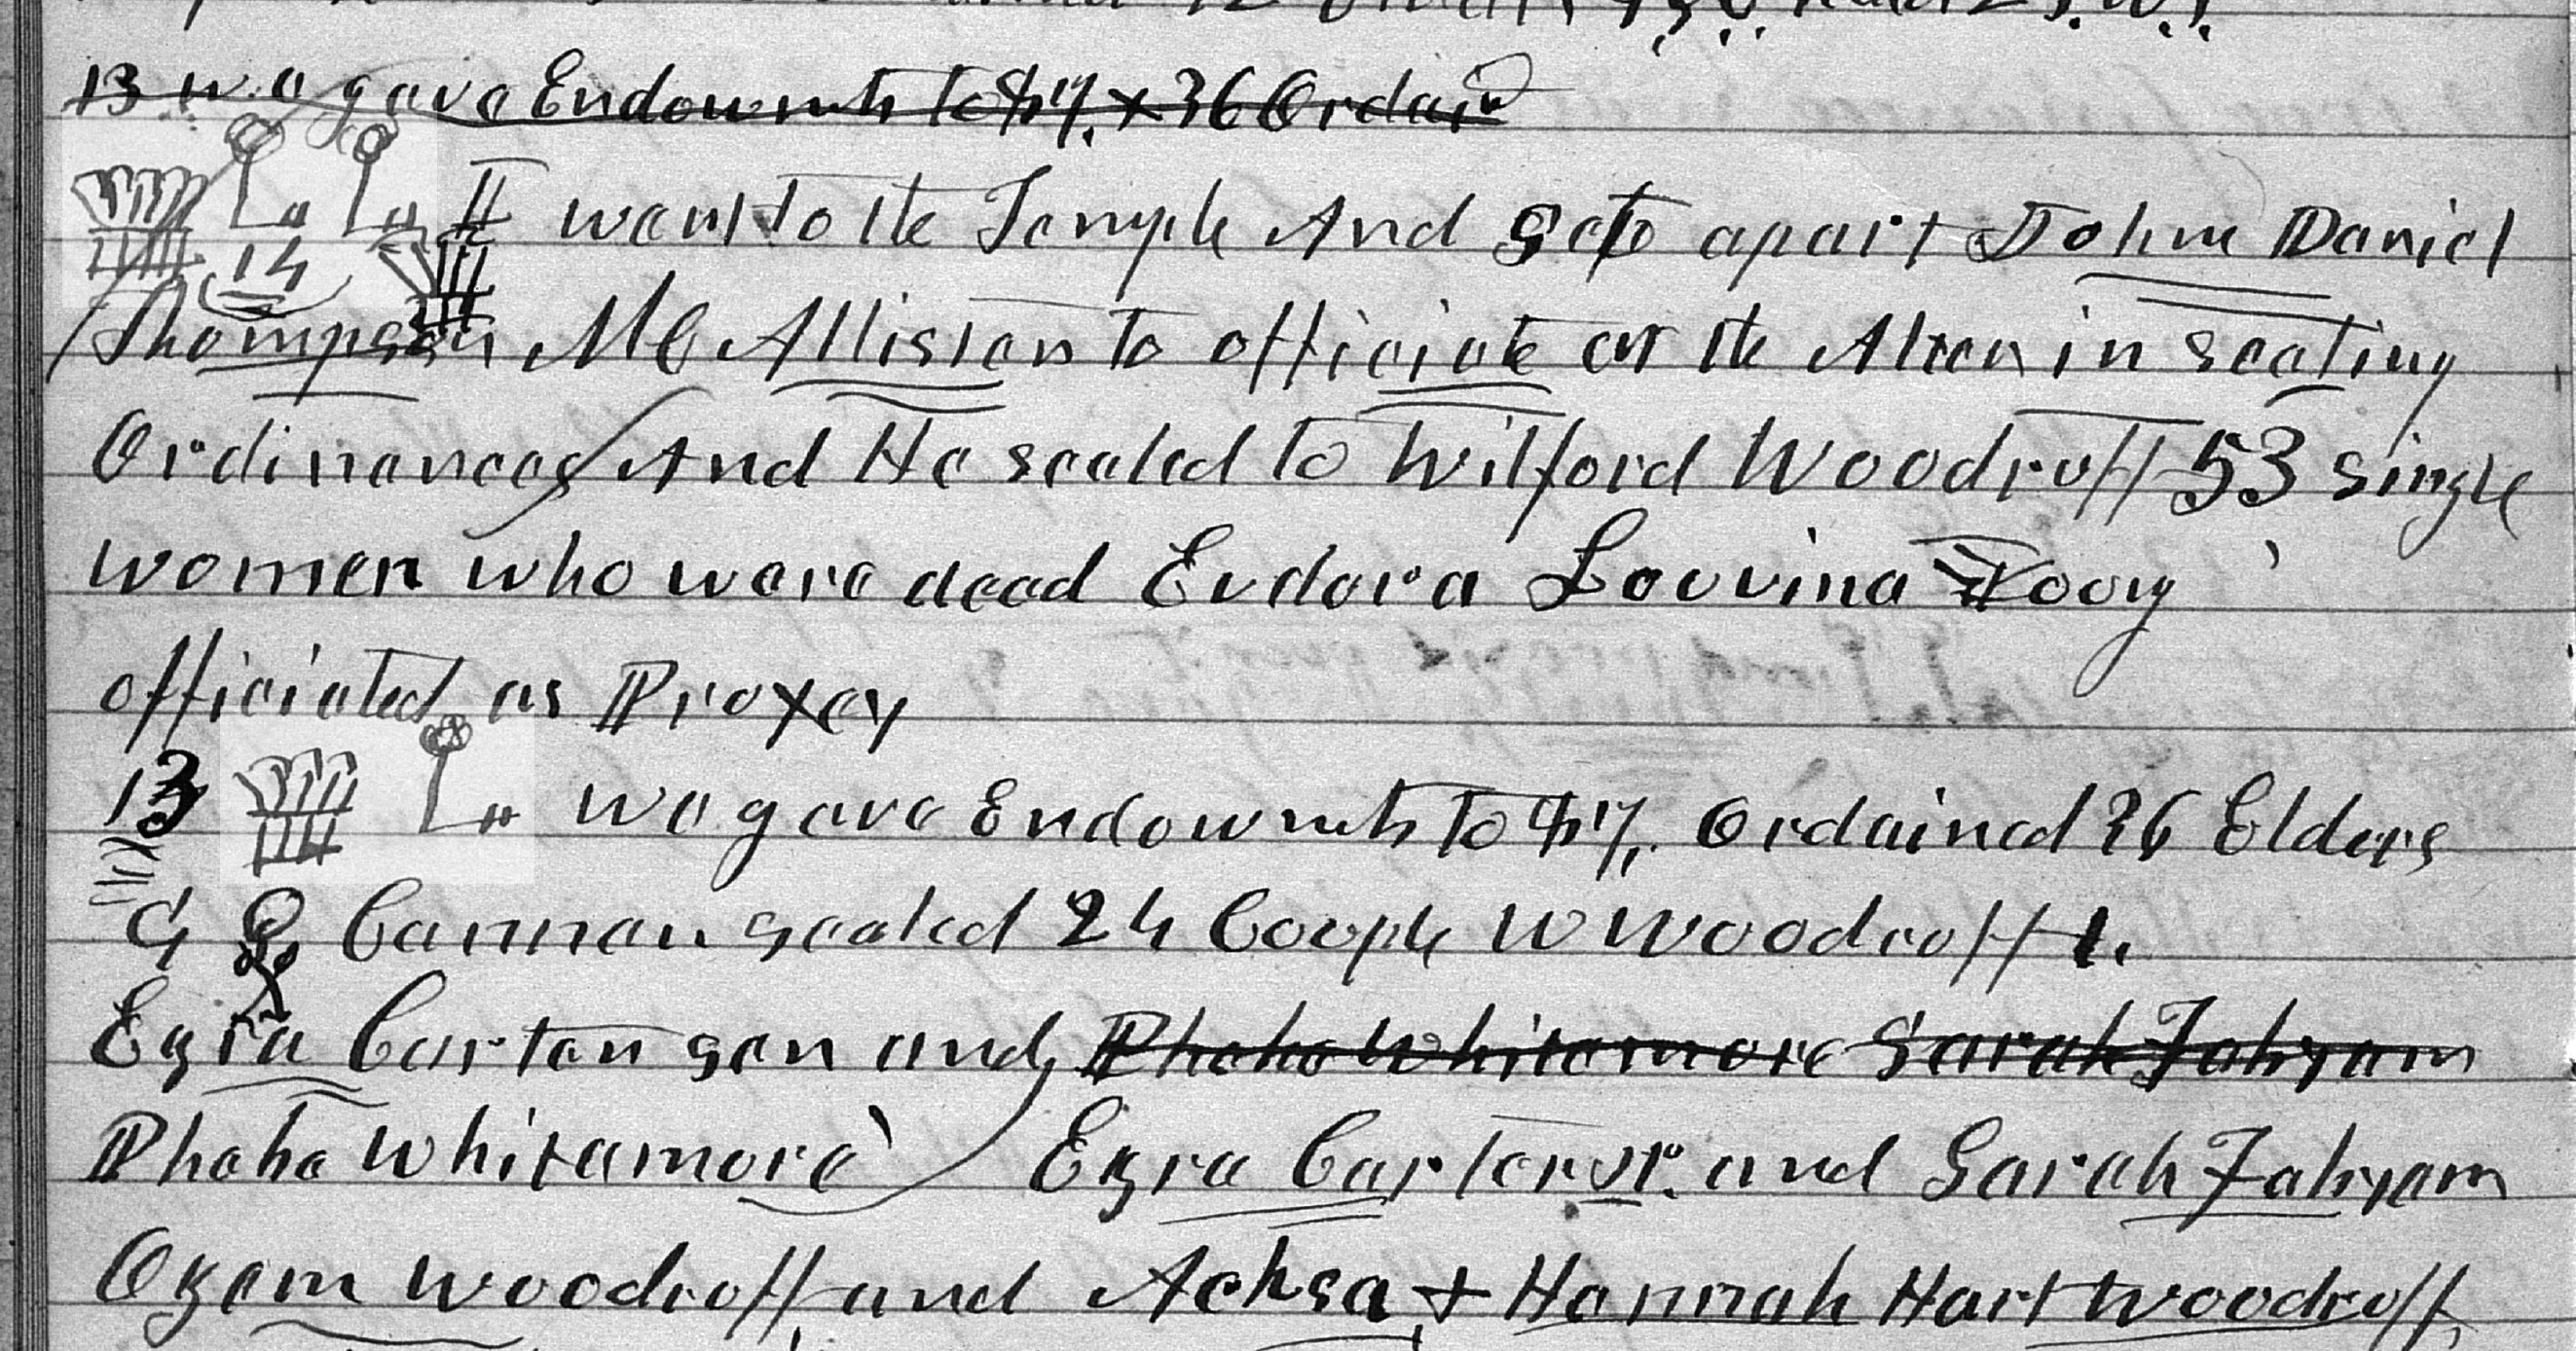 13 we gave Endowmts to 97. + 36 Ordain
14 I went to the Temple And Set apart John Daniel
Thompson McAllister to officiate at the Alter in sealing
Ordinances And He sealed to Wilford Woodruff 53 single
women who were dead Eudora Lovina Young
officiated as Proxey
13 we gave Endowmts to 97. Ordained 36 Elders
G Q Cannon sealed 24 Couple W Woodruff 1.
Ezra Carter sen and Phebe Whitemore Sarah Fabyam
Phebe Whitamore Ezra Carter Jr. and Sarah Fabyam
Ozem Woodruff and Achsa + Hannah Hart Woodruff